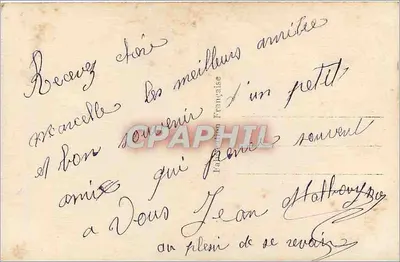 Recevez chère
Marcelle les meilleurs amitiés
et bon souvenir d'un petit
amie qui pense souvent
a Vous Jean
au plesir de se revoir
Fabrication Française
CPAPHIL